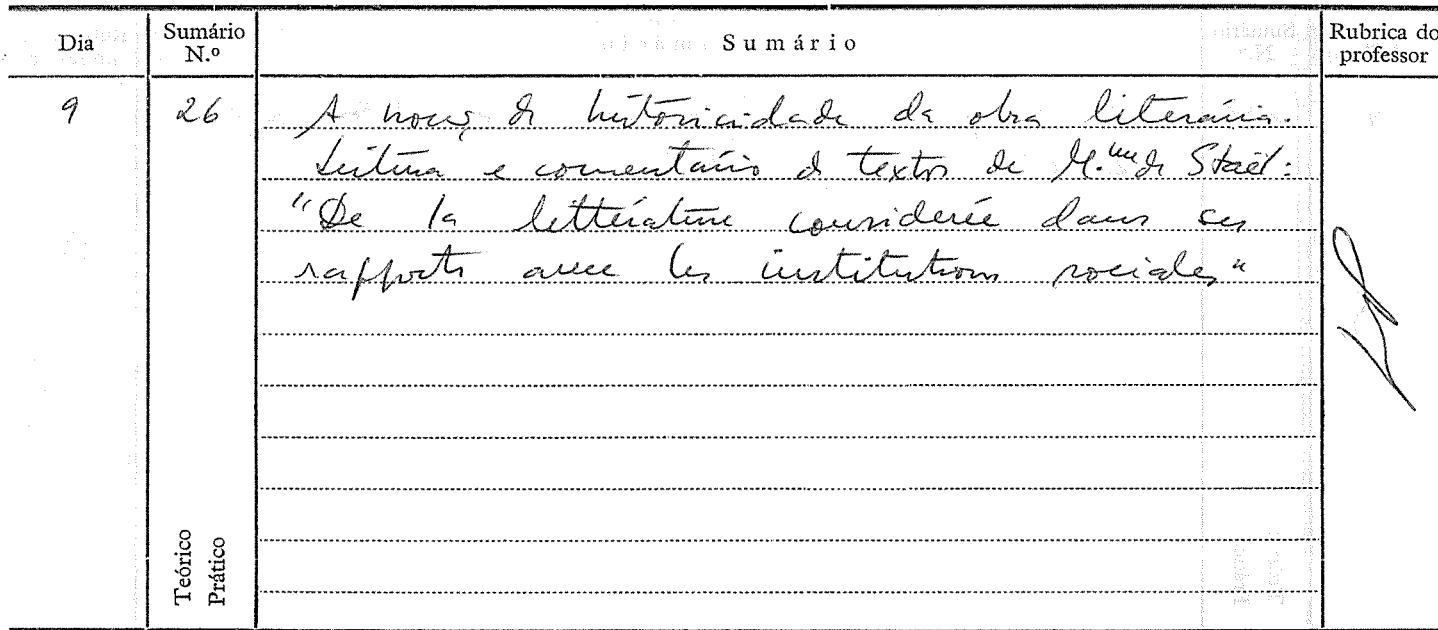 Dia Sumário N.º Sumário Rubrica do professor
9 26 A noção de historicidade da obra literária.
Leitura e comentário de textos de M.me de Staël:
"De la littérature considerée dans ses
rapports avec les institutions sociales"
Teórico
Prático